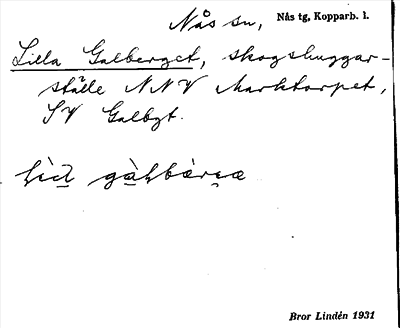 Nås sn, Nås tg, Kopparb. l.
Lilla Galberget, skogshuggar-
ställe NNV Marktorpet,
SV Galbgt.
gàɫbær
Bror Lindén 1931